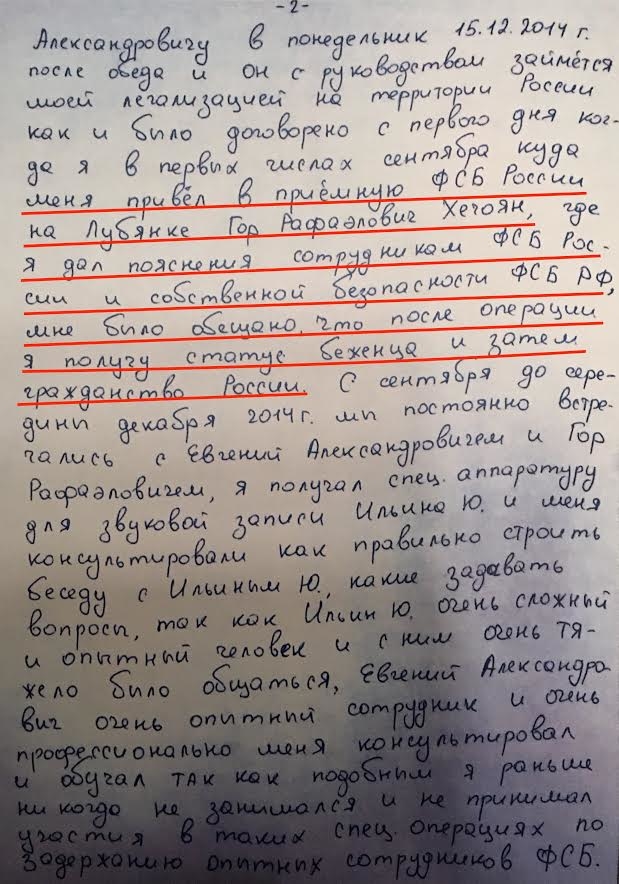 -2-
Александровичу в понедельник 15.12.2014 г.
после обеда и он с руководством займётся
моей легализацией на территории России
как и было договорено с первого дня ког-
да я в первых числах сентября куда
меня привёл в приёмную ФСБ России
на Лубянке Гор Рафаэлович Хечоян, где
я дал пояснения сотрудникам ФСБ Рос-
сии и собственной безопасности ФСБ РФ,
мне было обещано, что после операции
я получу статус беженца и затем
гражданство России. С сентября до сере-
дины декабря 2014г. мы постоянно встре-
чались с Евгений Александровичем и Гор
Рафаэловичем, я получал спец. аппаратуру
для звуковой записи Ильина Ю. и меня
консультировали как правильно строить
беседу с Ильиным Ю., какие задавать
вопросы, так как Ильин Ю. очень сложный
и опытный человек и с ним очень тя-
жело было общаться, Евгений Александро-
вич очень опитный сотрудник и очень
профессионально меня консультировал
и обучал так как подобным я раньше
никогда не занимался и не принимал
участия в таких спец. операциях по
задержанию опытных сотрудников ФСБ.